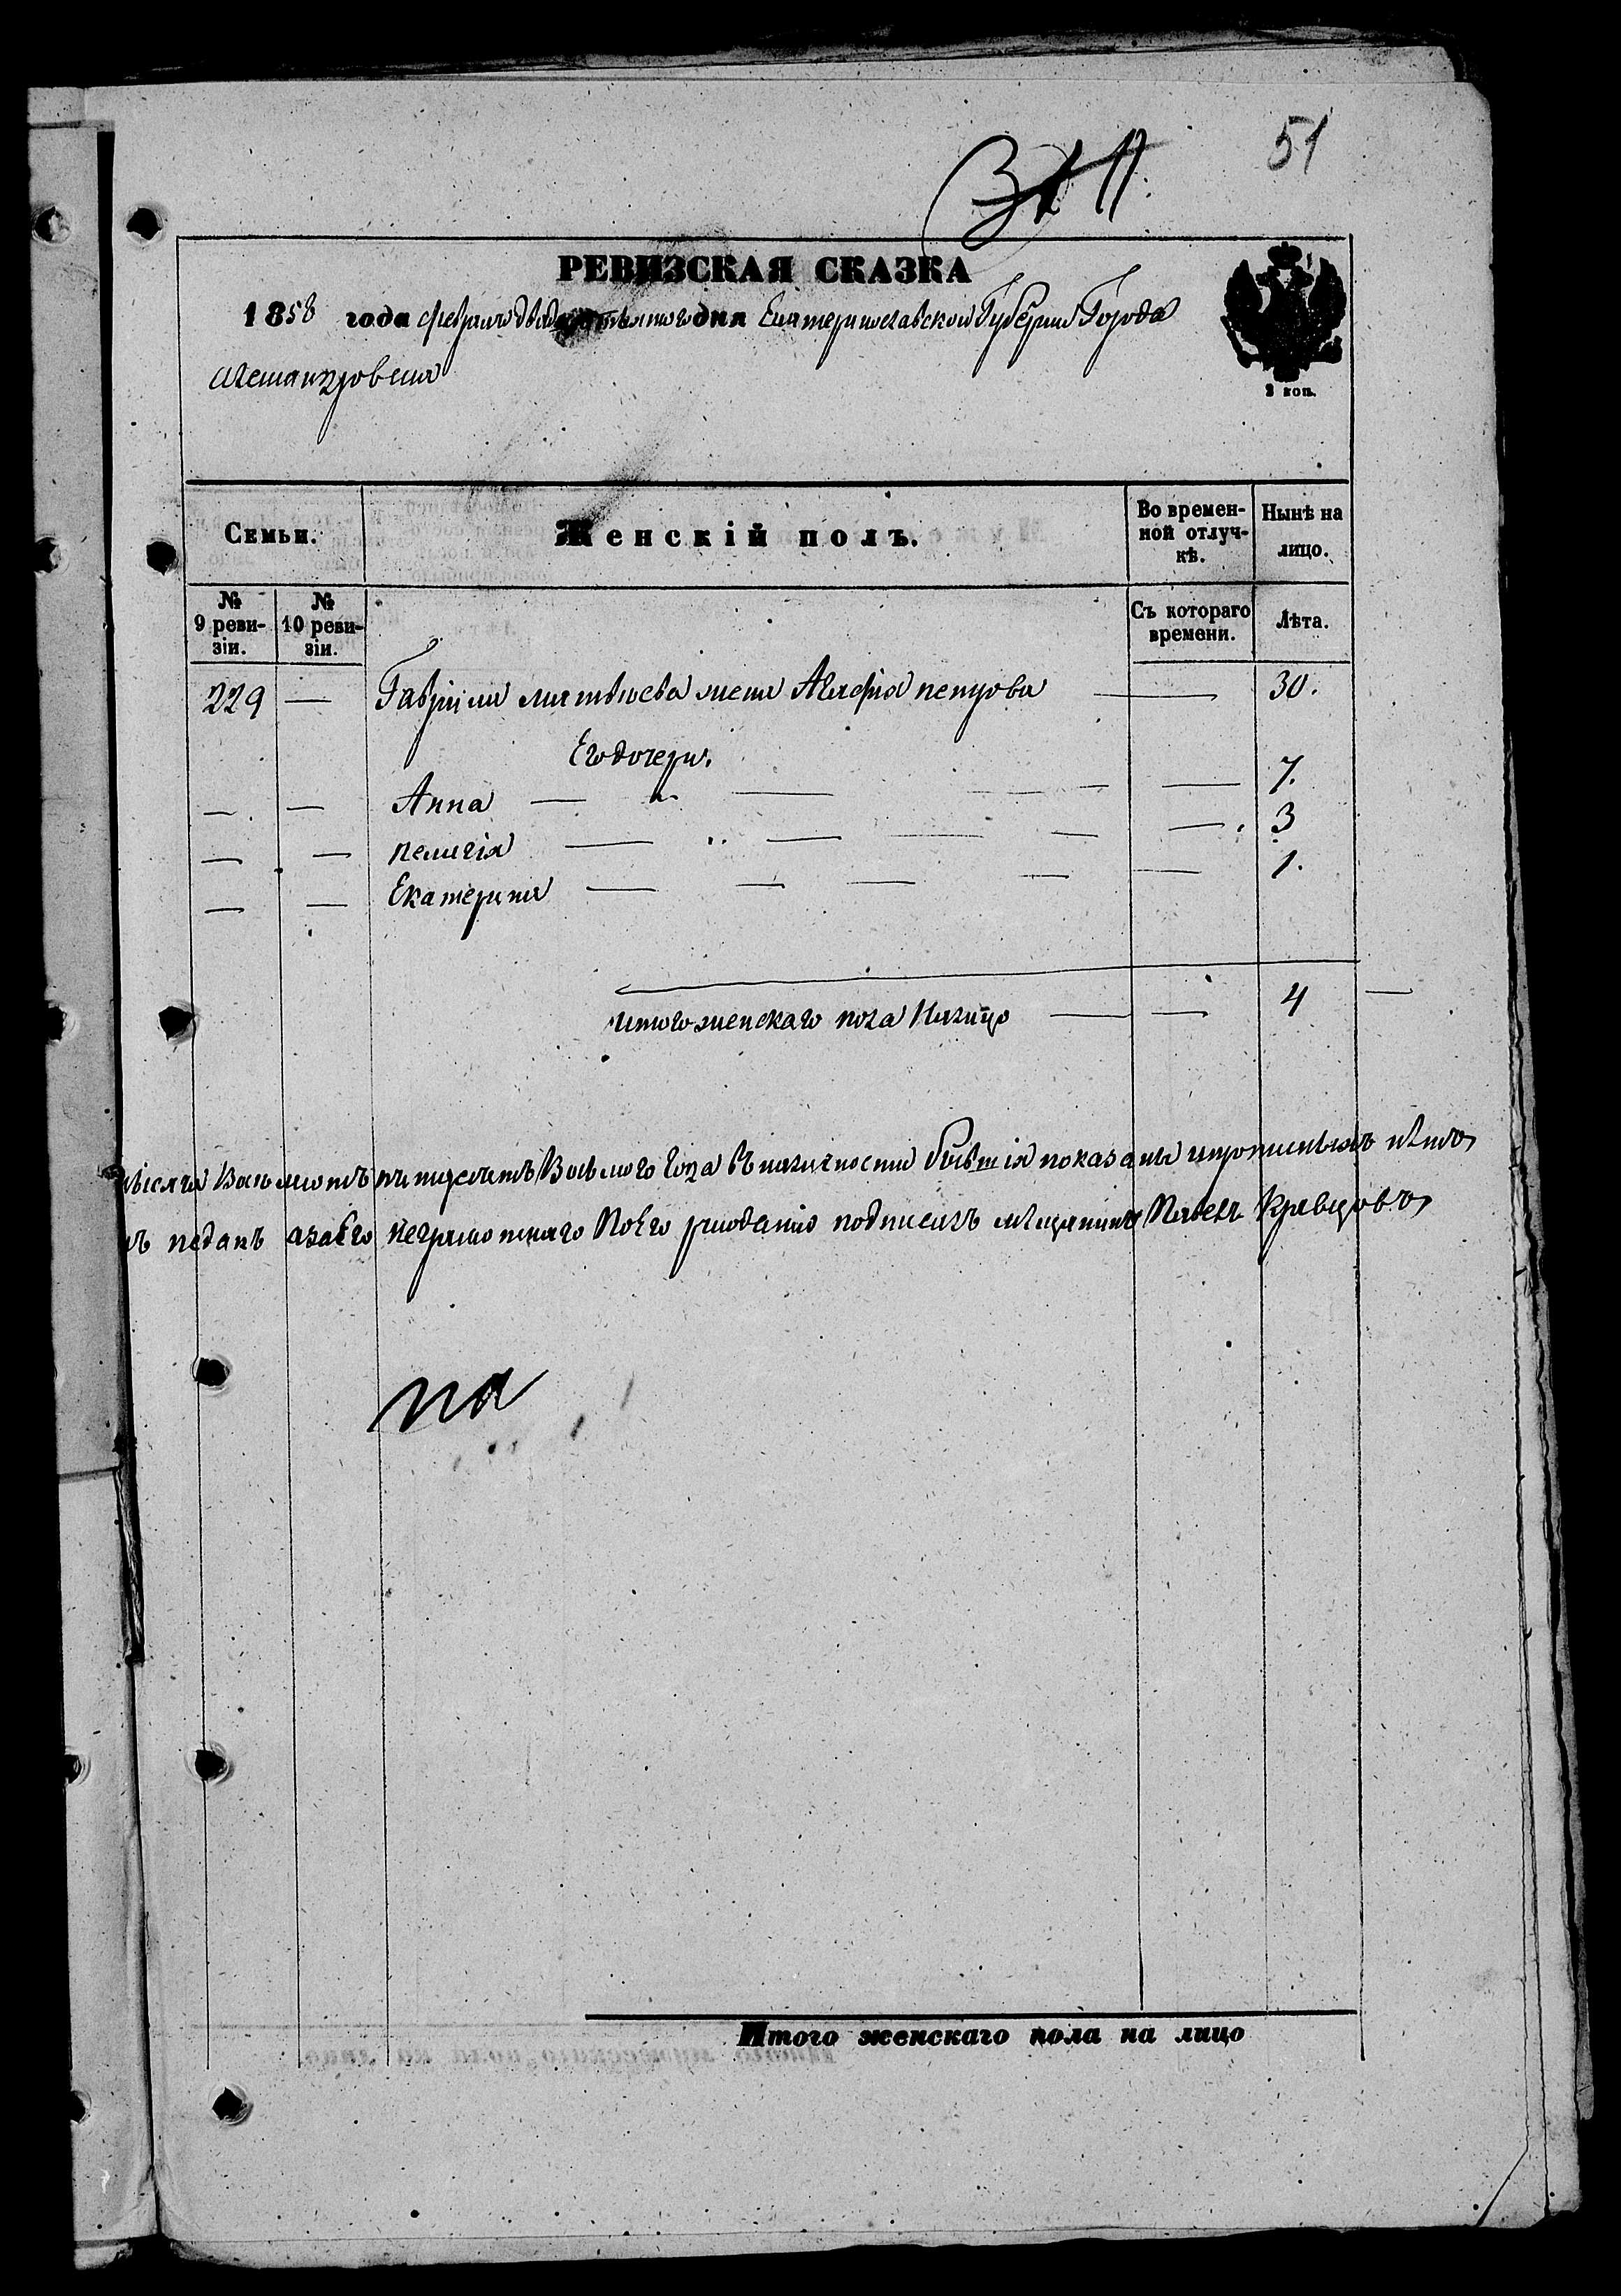 51
РЕВИЗСКАЯ СКАЗКА
1858 года февраля дня Екатеринославской Губернiи Города
Александровска
2 коп.
Семьи.
Женскій полъ.
Во времен-
ной отлуч-
кѣ.
Нынѣ на
лицо.
№
9 реви-
зіи.
№
10 реви-
зіи.
Съ котораго
времени.
Лѣта.
229 — Гаврiила матвѣева жена Агафiя петрова — 30.
Его дочери.
— — Анна — 7.
— — пелагiя — 3
— — Екатерина — 1.
итого женскаго пола Налицо — — 4 —
Восемьсотъ пятьдесятъ Восьмого года въ наличности бывшiя показаны ипрописныхъ нѣтъ
неграмотнаго По Его подписалъ мѣщанинъ Павелъ Кравцовъ
на
Итого женскаго пола на лицо